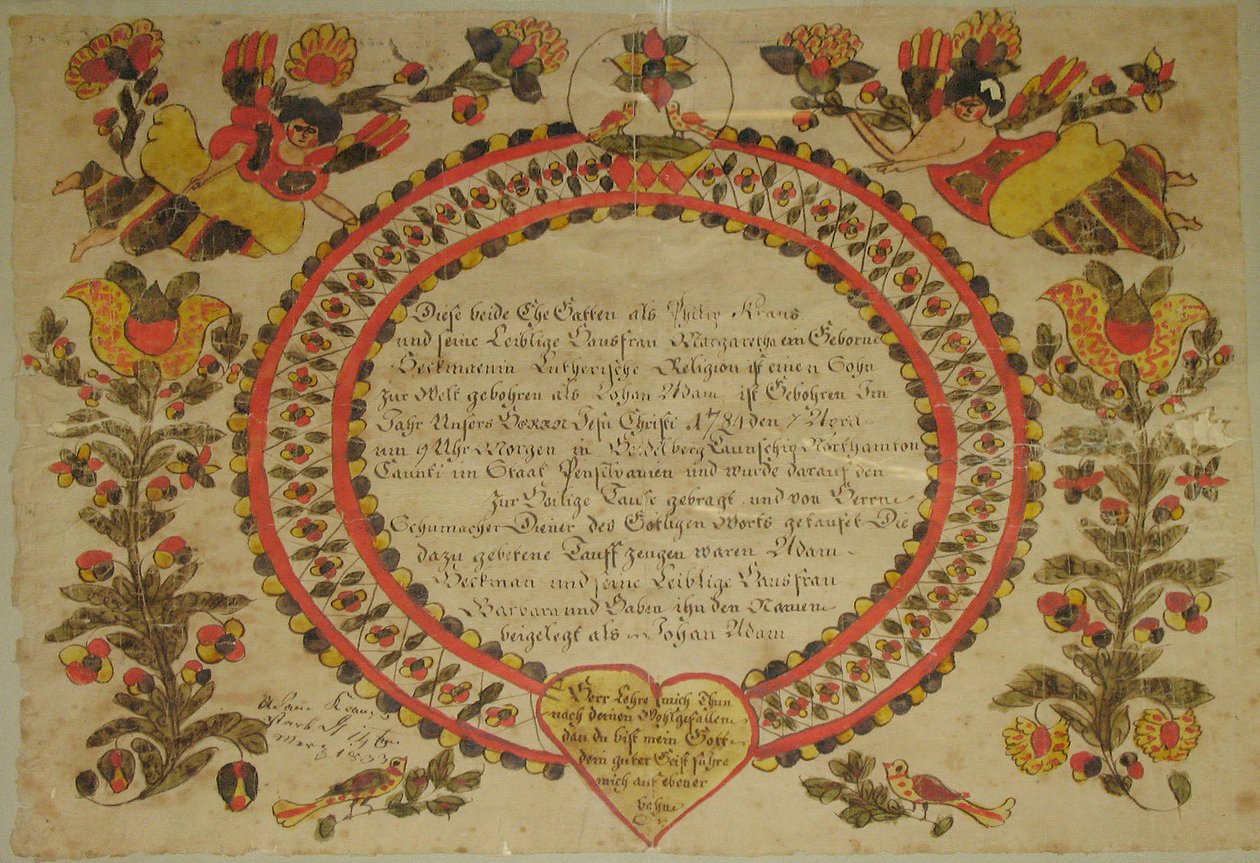 Diese beide Ehe Gatten als Philip Kraus
und seine Leiblige Hausfrau Margaretha ein Geborne
Beckmaenin Lutherische Religion ist einen Sohn
zur Welt gebohren als Johan Adam ist Gebohren Im
Jahr Unsers HERRN Jesu Christi 1784 den 7 April
um 9 Uhr Morgen in Heidelberg Taunschip Northamton
Caunti im Staat Pensilvanien und wurde darauf den
zur Heilige Taufe gebragt und von Herrn
Schumacher Diener des Götligen Worts getaufet Die
dazu gebetene Tauff zeugen waren Adam
Beckman und seine Leiblige Hausfrau
Barbara und Haben ihn den Namen
beigelegt als Johan Adam
Herr Lehre mich Thun
nach deinen Wohlgefallen
dan du bist mein Gott
dein guter Geist führe
mich auf ebener
bahn
Adam Kraus
starb d 14 te
Merz 1803